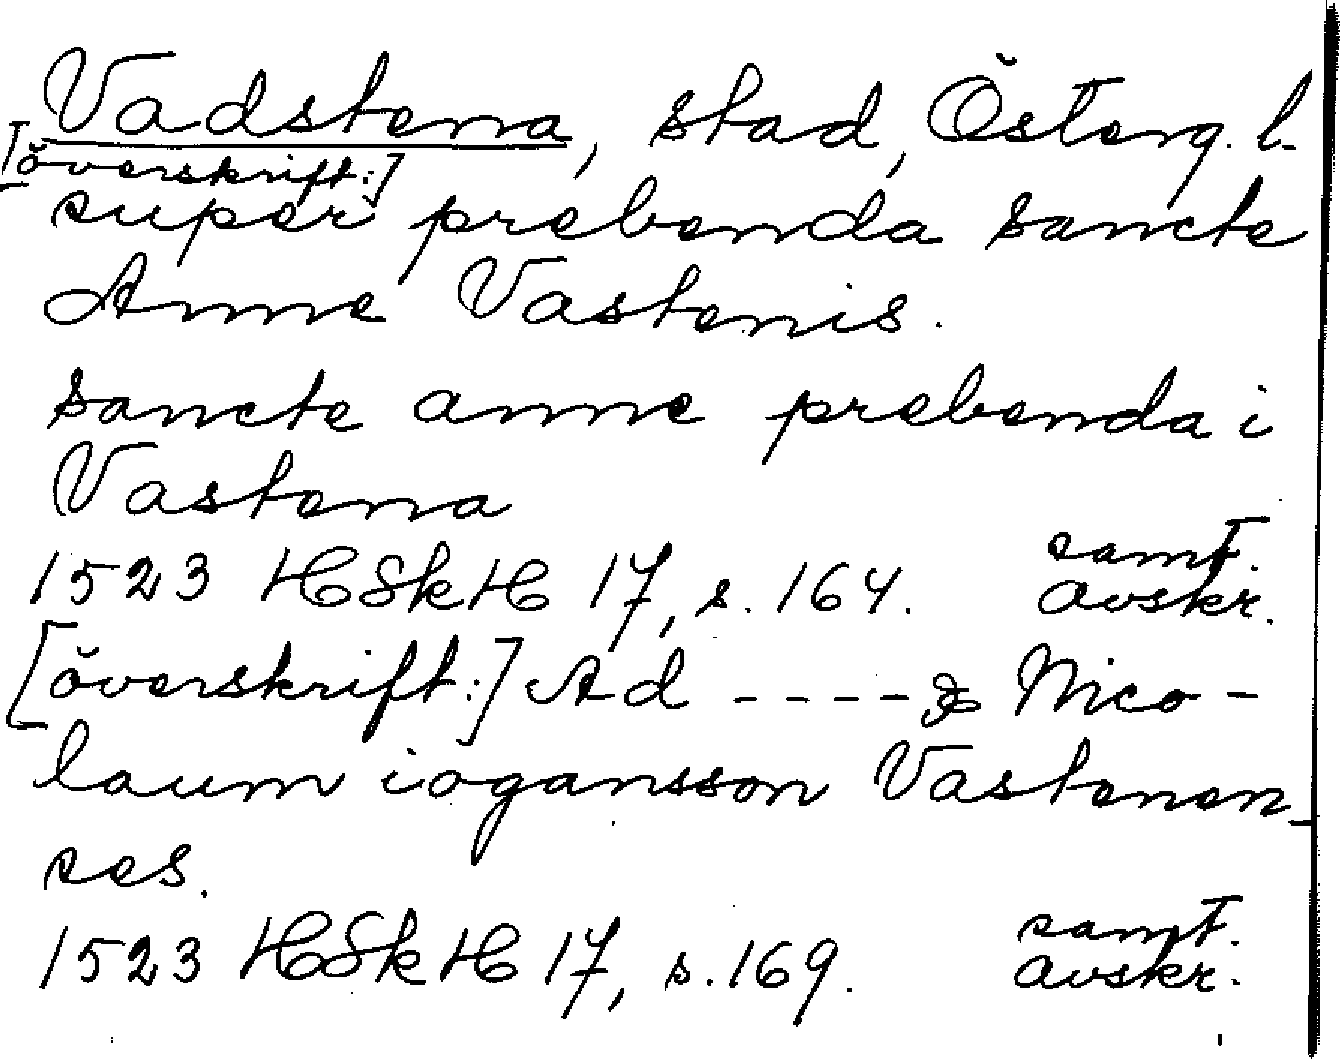 Vadstena, stad, Österg. l.
[överskrift:]
super prebenda sancte
Anne Vastenis.
sancte anne prebenda i
Vastena
1523 HSkH 17, s. 164. samt. avskr.
[överskrift:] Ad ---- & Nico-
laum iogansson Vastenen-
ses.
1523 HSkH 17, s. 169. samt. avskr.